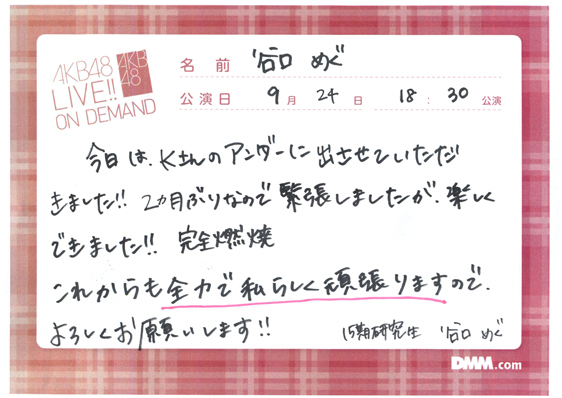 AKB48
LIVE!!
ON DEMAND
AKB
48
名前 谷口 めぐ
公演日 9月 24日 18:30公演
今日は、Kさんのアンダーに出させていただ
きました!! 2ヵ月ぶりなので緊張しましたが、楽しく
できました!! 完全燃焼
これからも全力で私らしく頑張りますので、
よろしくお願いします!!
15期研究生 谷口 めぐ
DMM.com